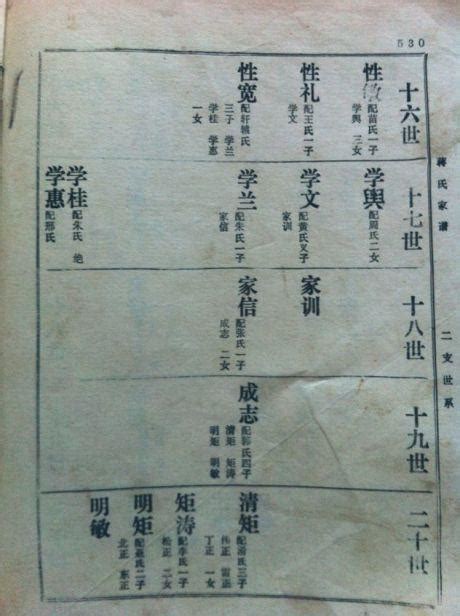 530
蒋氏家谱
二支世系
十六世
性
配苗氏一子
学舆 三女
性礼
配王氏一子
学文
性宽
配轩辕氏
三子 学兰
学桂 学惠
一女
十七世
学舆
配周氏二女
学文
配黄氏义子
家训
学兰
配朱氏一子
家信
学桂
配朱氏 绝
学惠
配邢氏
十八世
家训
家信
配张氏一子
成志 二女
十九世
成志
配郭氏四子
清矩 矩涛
明矩 明敏
二十世
清矩
氏三子
伟正 雷正
丁正 一女
矩涛
配李氏一子
松正 二女
明矩
配聂氏二子
北正 东正
明敏